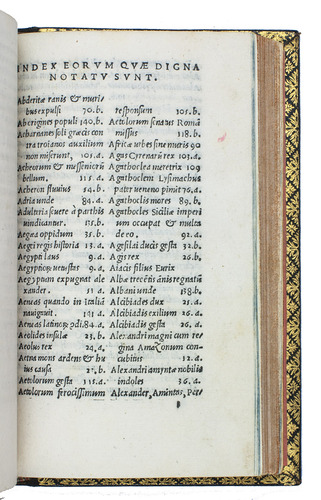 INDEX EORVM QVÆ DIGNA
NOTATV SVNT.
Abderitæ ranis & muri
bus expulsi 70.b.
Aborigines populi 140.b.
Acharnanes soli græci con
tra troianos auxilium
non miserunt, 105.a.
Acheorum & messeniorũ
bellum. 115.a.
Acheron fluuius 54.b.
Adria unde 84.a.
Adulteria seuere à parthis
uindicant 145.b.
Aegæa oppidum 35.b.
Aegei regis historia 13.a.
Aegypti laus 9.a.
Aegyptiorum uetustas 9.a.
Aegyptum expugnat ale
xander. 51.a.
Aeneas quando in italiã
nauigauit. 141.a.
Aeneas latinorum 84.a.
Aeolides insulæ 23.b.
Aeolus rex 24.a.
Aetna mons ardens & hu
ius causa. 23.b.
Aetolorum gesta 115.a.
Aetolorum ferocissimum
responsum 105.b.
Aetolorum senatus Romã
missus 118.b.
Africæ urbes sine muris 90
Agis Cyrenarũ rex 103.a.
Agathoclea meretrix 109
Agathoclem Lysimachus
pater ueneno pimit 76.a.
Agathoclis mores 89.b.
Agathocles Siciliæ imperi
um occupat & multa
de eo. 92.a.
Agesilai ducis gesta 32.b.
Agis rex 26.b.
Aiacis filius Eurix
Albani unde 158.b.
Alcibiades dux 25.a.
Alcibiadis exilium 26.a.
Alcibiadis gesta 26.a.
Alexandri magni cum re
gina Amazonum con
cubitus 12.a.
Alexandri amyntæ nobilis
indoles 36.a.
Alexander, Amintas, Per